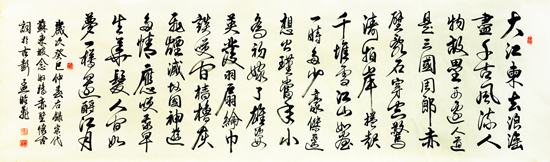 大江東去浪淘
盡千古風流人
物故壘西邊人道
是三國周郎赤
壁亂石穿空驚
濤拍岸捲起
千堆雪江山如畫
一時多少豪傑遙
想公瑾當年小
喬初嫁了雄姿
英發羽扇綸巾
談笑間檣櫓灰
飛煙滅故國神遊
多情應笑我早
生華髮人間如
夢一樽還酹江月
歲次癸巳仲春右錄宋代
蘇東坡念奴嬌赤壁懷古
詞於古彭